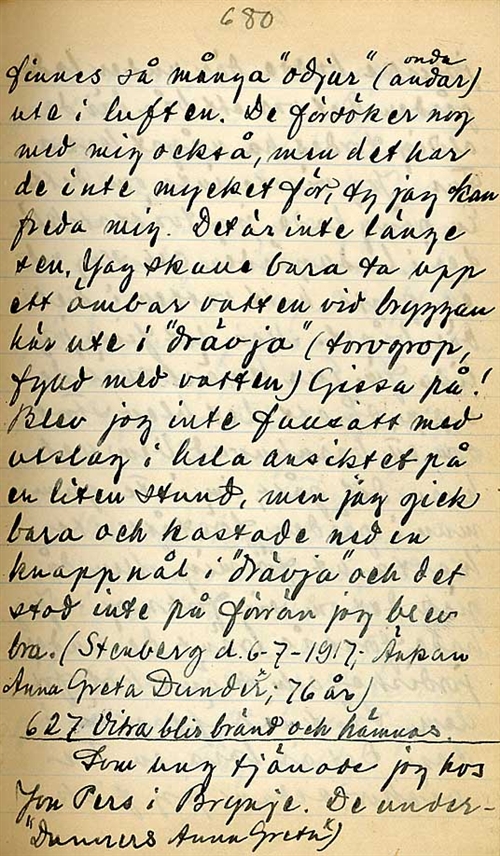 680
finnes så många "odjur" (onda andar)
ute i luften. De försöker nog
med mig också, men det har
de inte mycket för, ty jag kan
freda mig. Det är inte länge
sen, Jag skulle bara ta upp
ett ämbar vatten vid bryggan
här ute i "drävja" (torvgrop,
fylld med vatten) Gissa på!
Blev jag inte fullsatt med
utslag i hela ansiktet på
en liten stund, men jag gick
bara och kastade ned en
knappnål i "drävja" och det
stod inte på förrän jag blev
bra. (Stenberg d. 6-7-1917; Änkan
Anna Greta Dunder, 76 år)
627 Vitra blir bränd och hämnas.
Som ung tjänade jag hos
Jon Pers i Brynje. De under-
Anna Greta")